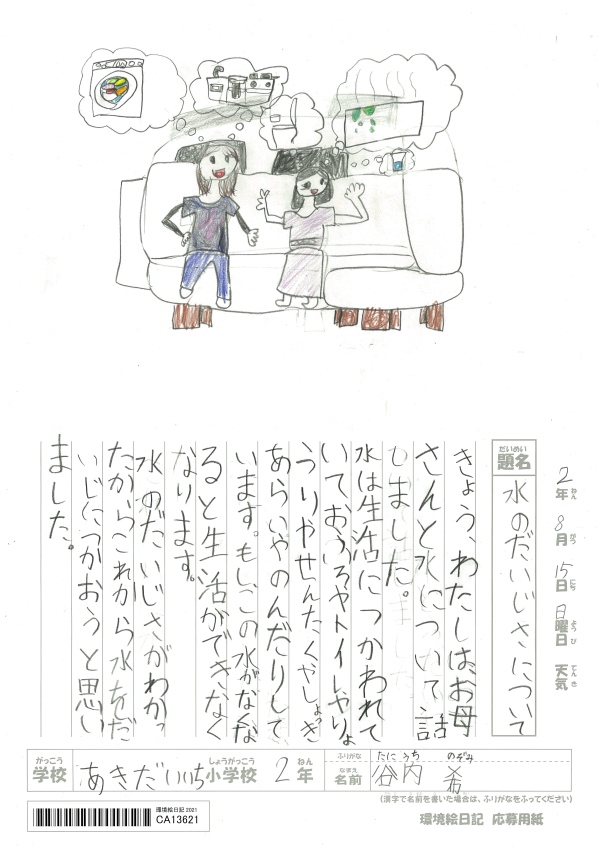 2年ねん 8月がつ 15日にち 日曜日ようび 天気てんき
だいめい
題名
水のだいじさについて
きょう、わたしは、お母
さんと水について話
しました。
水は生活につかわれて
いておふろやトイレやりょ
うりやせんたくやしょっき
あらいやのんだりして
います。もしこの水がなくな
ると生活ができなく
なります。
水のだいじさがわかっ
たからこれから水をだ
いじにつかおうと思い
ました。
がっこう
学校
あきだいいち
しょうがっこう
小学校
2
ねん
年
ふりがな
たに うち のぞみ
なまえ
名前
谷内 希
(漢字で名前を書いた場合は、ふりがなをふってください)
環境絵日記 2021
CA13621
環境絵日記 応募用紙